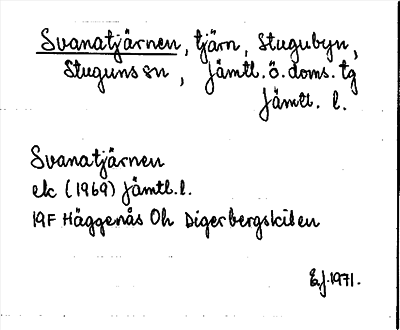 Svanatjärnen, tjärn, Stugubyn,
Stuguns sn, Jämtl. ö. doms. tg
Jämtl. l.
Svanatjärnen
ek (1969) Jämtl. l.
19F Häggenås Oh Digerbergskilen
EJ. 1971.